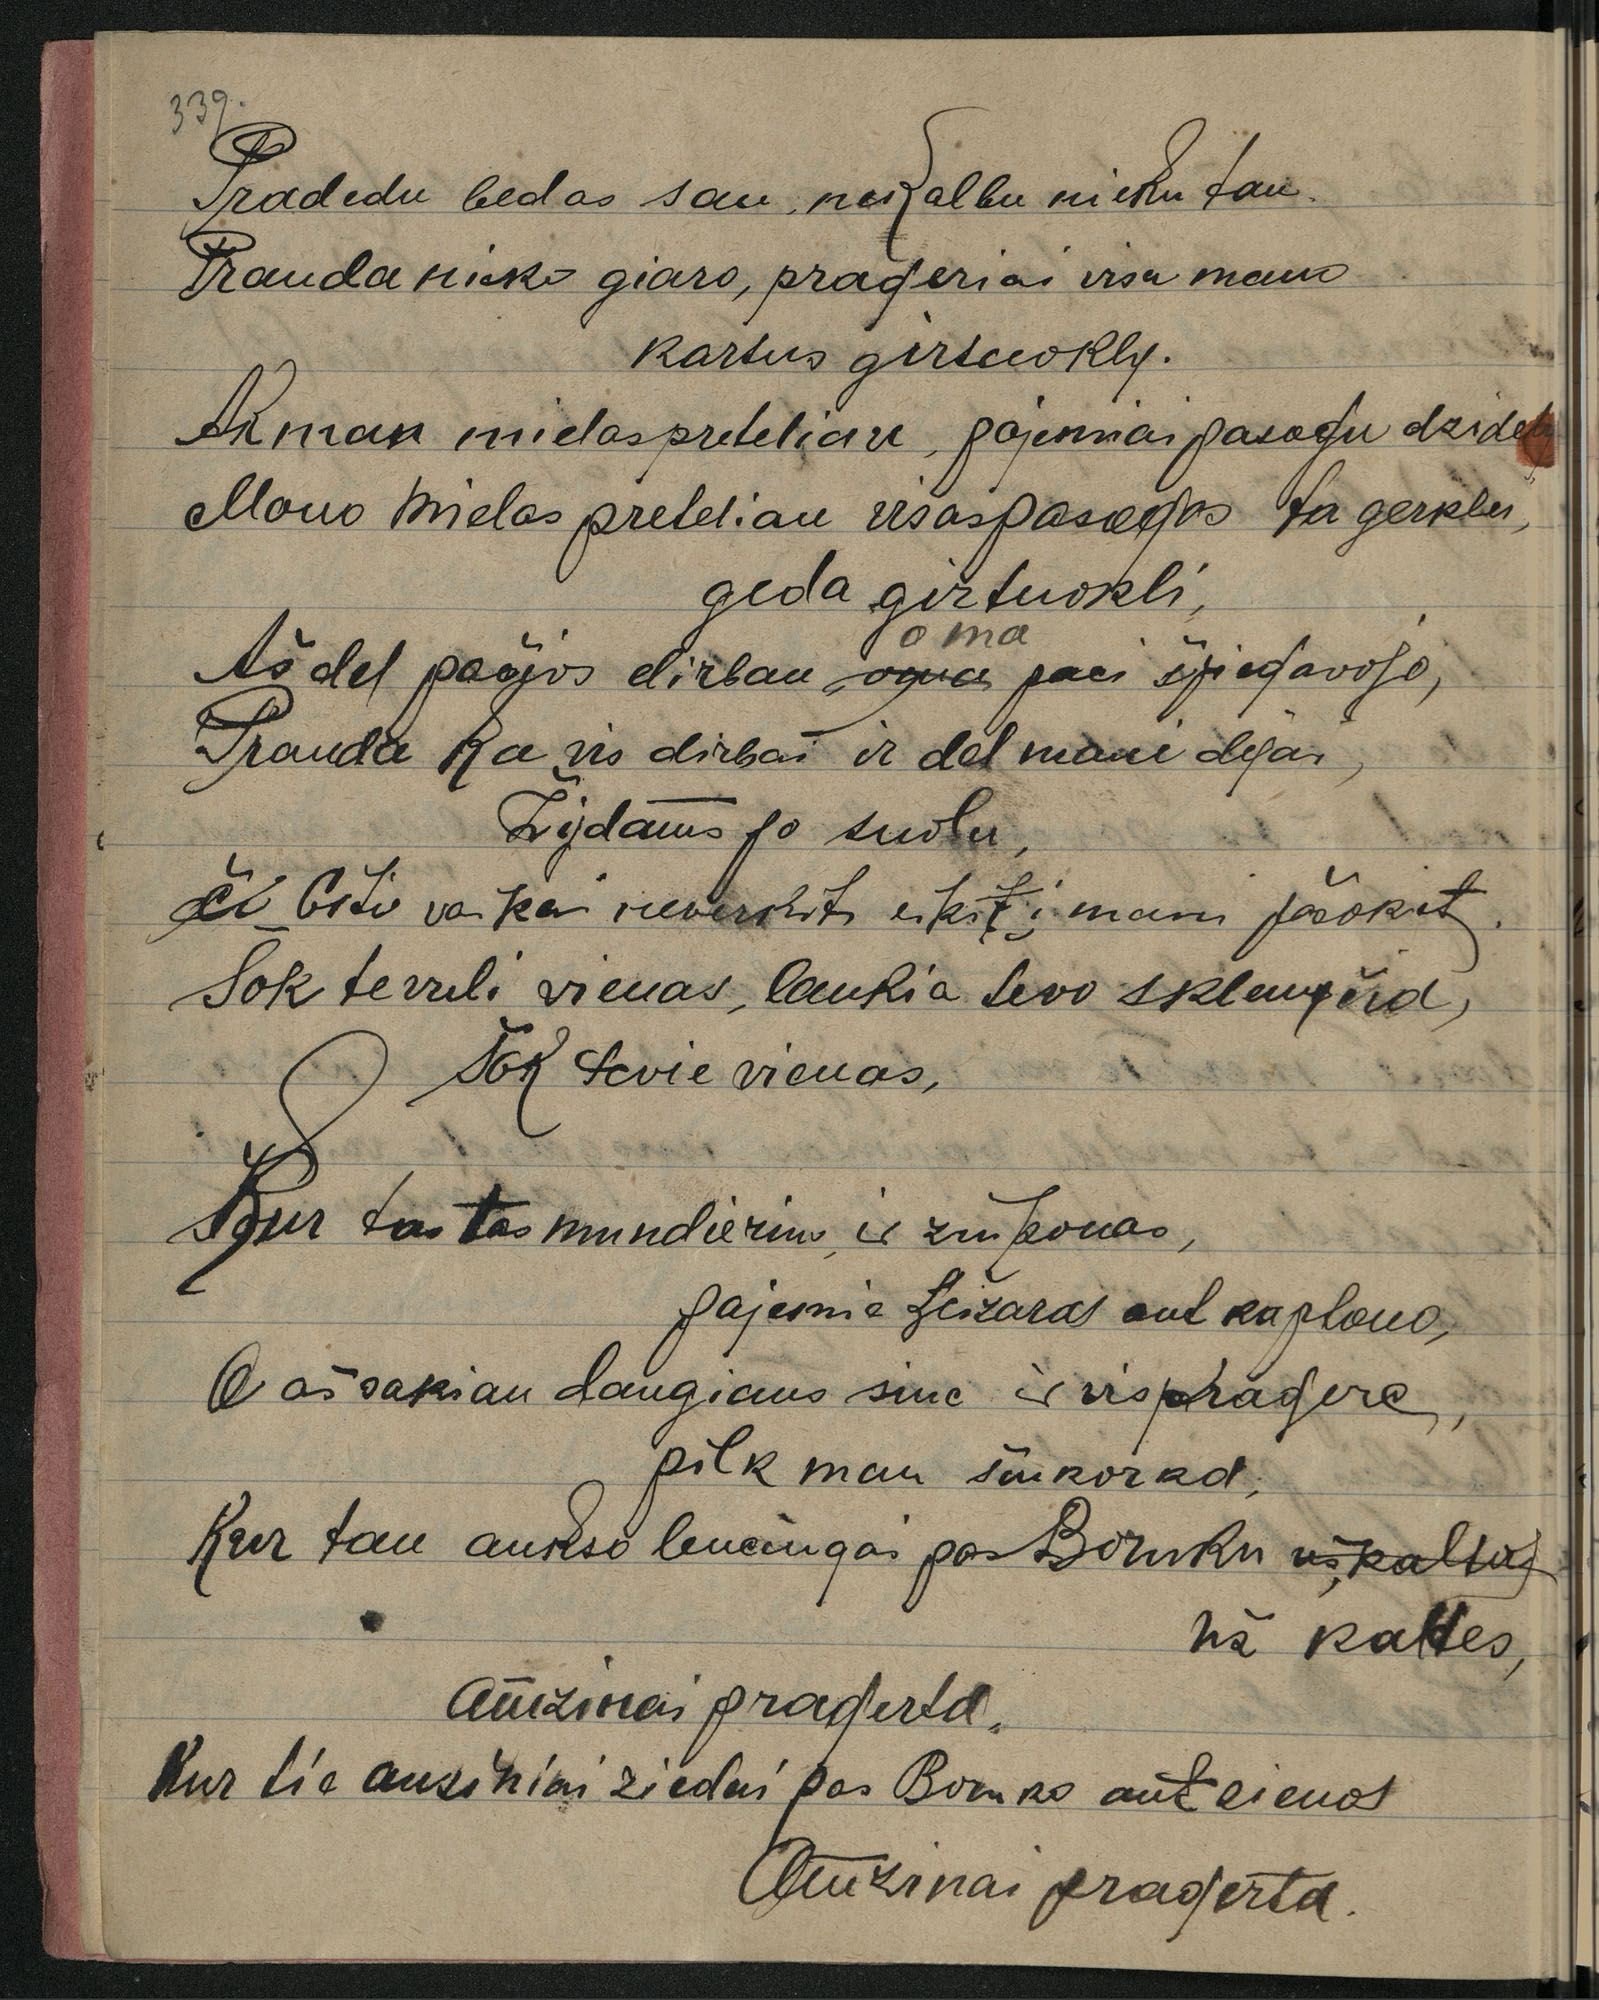 339.
Pradedu bedas sau, nekalbu nieku tau.
Prauda nieko giaro, prageriai visu mano
kartus girtuokly.
Ak man mielas preteliau, pajemiai pasogu dzidely
Mano mielas preteliau visas pasogas ta gerklei,
geda girtuokli,
o ma
Aš del pačjos dirbau, paci špiegavojo,
Prauda ka vis dirbai ir del mani dejai,
Žydams po suolu,
čiti vaikai neverkit, eikit į mani pašokit.
Šok tevuli vienas, laukia tevo sklenyčia,
Šok tevie vienas,
Kur tas tas mundierius, ir ziupouas,
pajemie Leizaras ant kaplono,
O aš sakiau daugiaus sine ir vis pragere,
pilk man šinkorka,
Kur tau aukso lenciugai pas Boruku uškaltas
už kaltes,
Amžinai pragerta.
Kur tie auksiniai ziedai pas Boruko ant sienos
Amžinai pragerta.